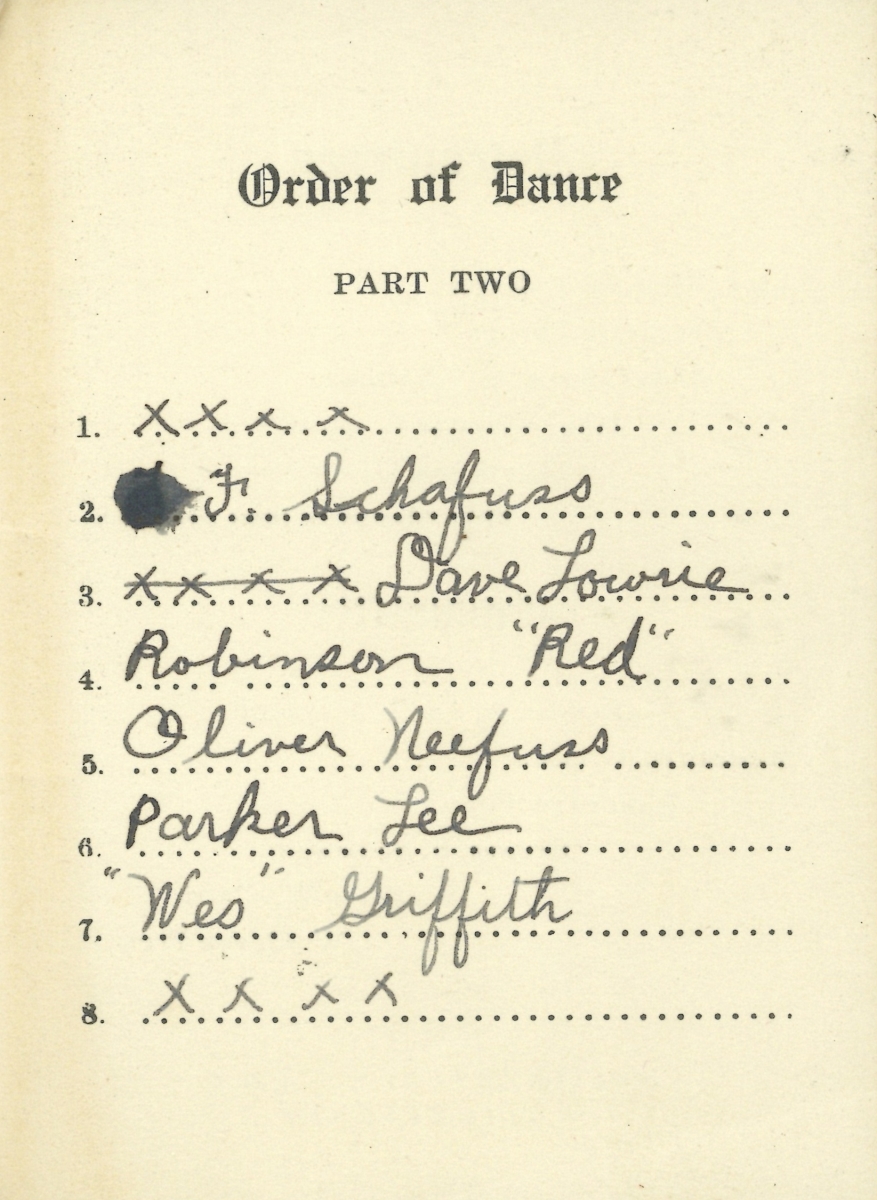 Order of Dance
PART TWO
1. x x x x
2. F. Schafuss
3. x x x x Dave Lowrie
4. Robinson "Red"
5. Oliver Neefuss
6. Parker Lee
7. "Wes" Griffith
8. x x x x